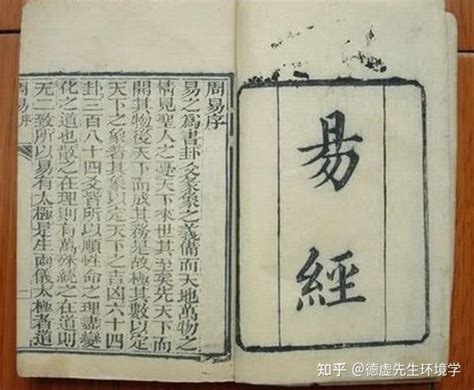 易經
周易序
易之為書卦爻彖象之義備而天地萬物之
情見聖人之憂天下來世其至矣先天下而
開其物後天下而成其務是故極其數以定
天下之象著其象以定天下之吉凶六十四
卦三百八十四爻皆所以順性命之理盡變
化之道也散之在理則有萬殊統之在道則
无二致所以易有太極是生兩儀太極者道
周易序
知乎 @德虚先生环境学